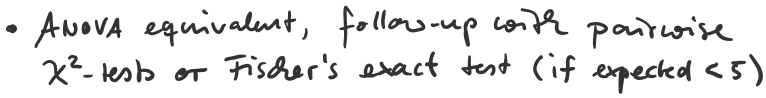 • ANOVA equivalent, follow-up with pairwise
χ²-tests or Fischer's exact test (if expected < 5)